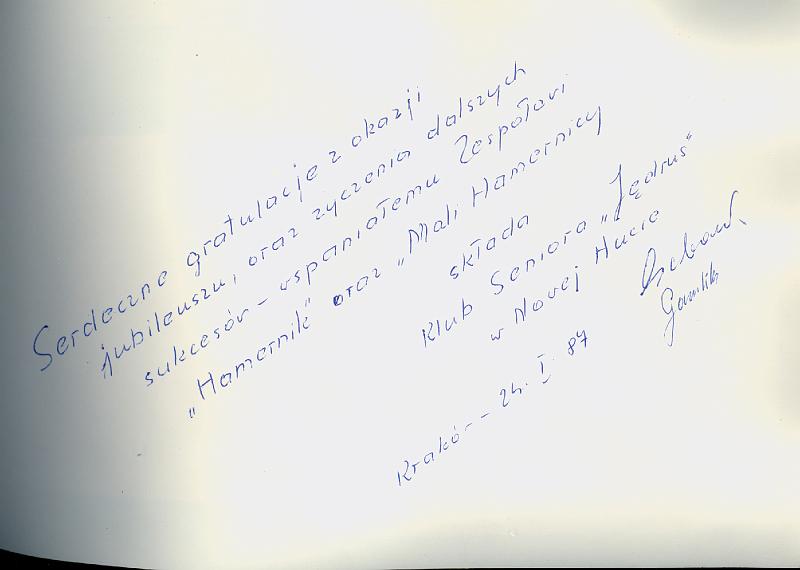 Serdeczne gratulacje z okazji
jubileuszu, oraz życzenia dalszych
sukcesów - wspaniałemu Zespołowi
„Hamernik" oraz „Mali Hamernicy
składa
Klub Seniora „Jędruś"
w Nowej Hucie
Kraków - 24. I. 87